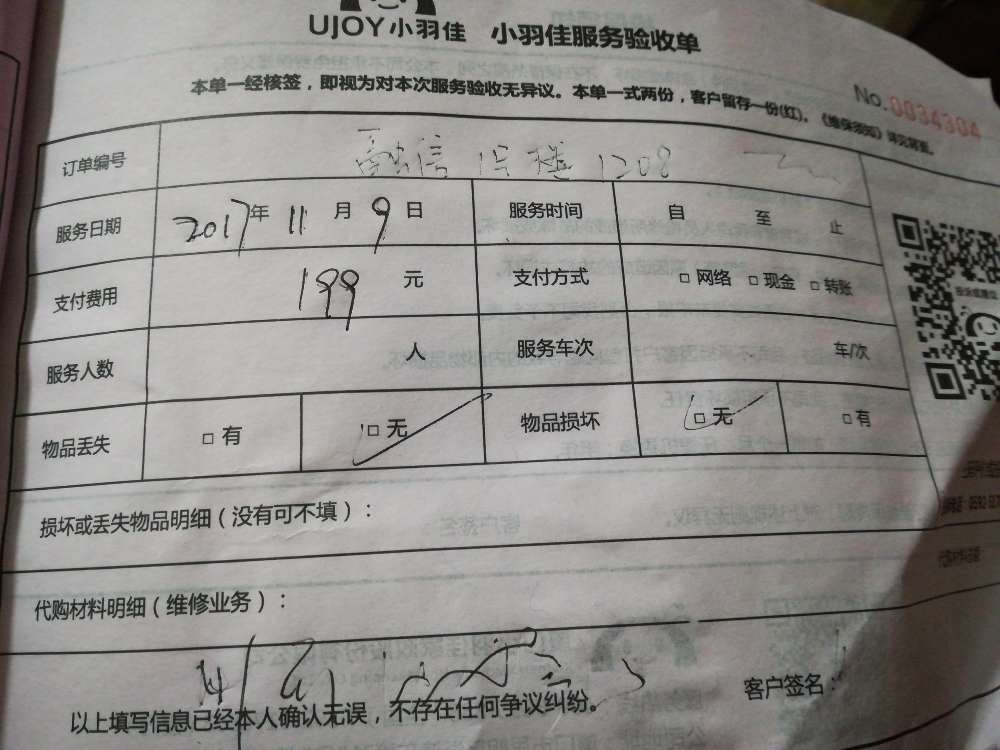 UJOY小羽佳 小羽佳服务验收单
本单一经核签，即视为对本次服务验收无异议。本单一式两份，客户留存一份(红)。《维保须知》详见背面。
No.0034304
订单编号 1208
服务日期 2017年 11月 9日 服务时间 自 至 止
支付费用 199 元 支付方式 □网络 □现金 □转账
服务人数 人 服务车次 车/次
物品丢失 □有 □无 物品损坏 □无 □有
损坏或丢失物品明细（没有可不填）：
代购材料明细（维修业务）：
以上填写信息已经本人确认无误，不存在任何争议纠纷。 客户签名：